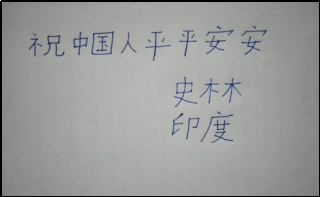 祝中国人平平安安
史林
印度